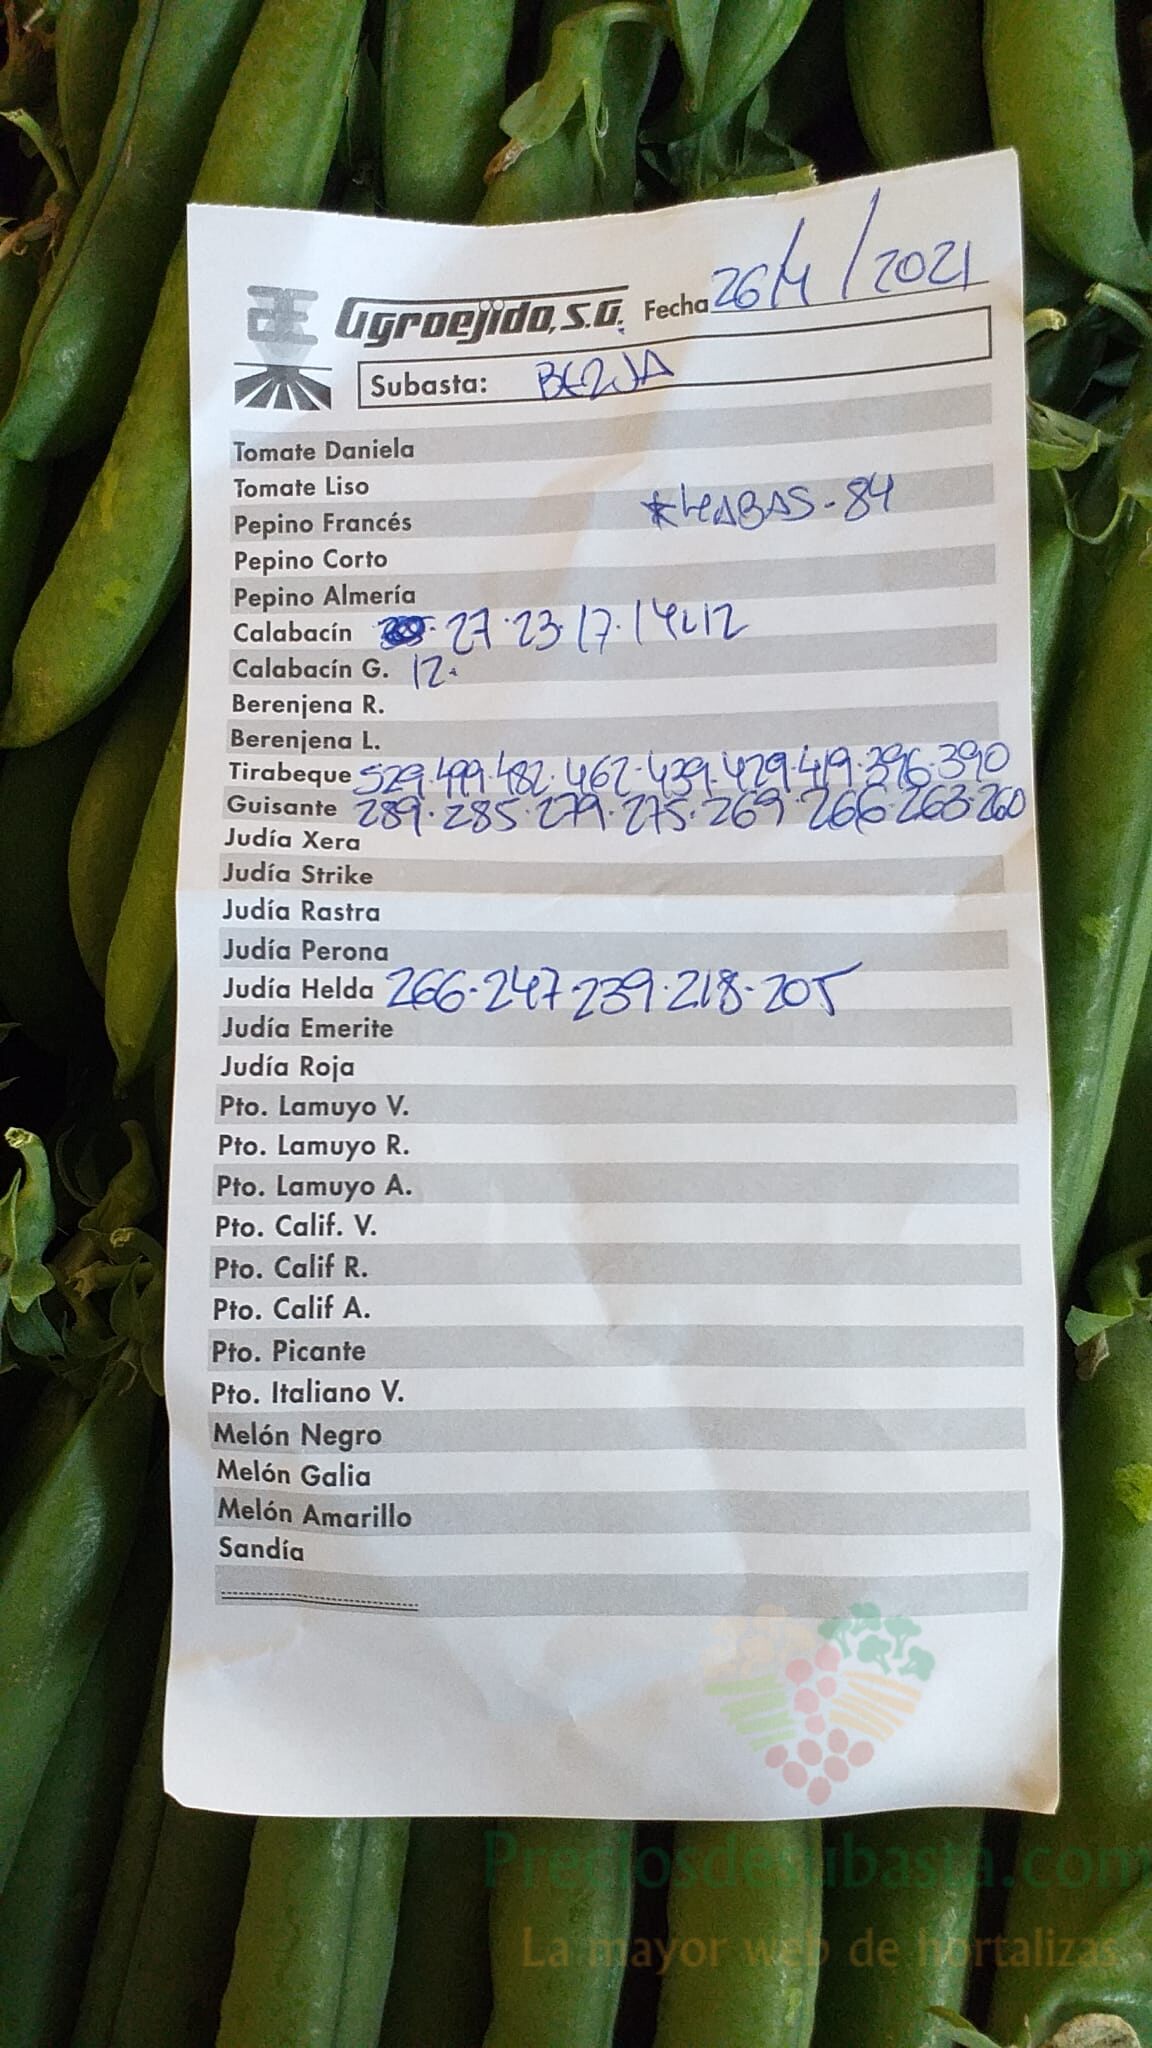 Agroejido, S.A. Fecha 26/4/2021
Subasta: BERJA
Tomate Daniela
Tomate Liso
*HABAS-84
Pepino Francés
Pepino Corto
Pepino Almería
Calabacín 27·23·17·14·12
Calabacín G. 12·
Berenjena R.
Berenjena L.
Tirabeque 529·499·482·462·439·429·419·396·390
Guisante 289·285·279·275·269·266·263·260
Judía Xera
Judía Strike
Judía Rastra
Judía Perona
Judía Helda 266·247·239·218·205
Judía Emerite
Judía Roja
Pto. Lamuyo V.
Pto. Lamuyo R.
Pto. Lamuyo A.
Pto. Calif. V.
Pto. Calif R.
Pto. Calif A.
Pto. Picante
Pto. Italiano V.
Melón Negro
Melón Galia
Melón Amarillo
Sandía
Preciosdesubasta.com
La mayor web de hortalizas